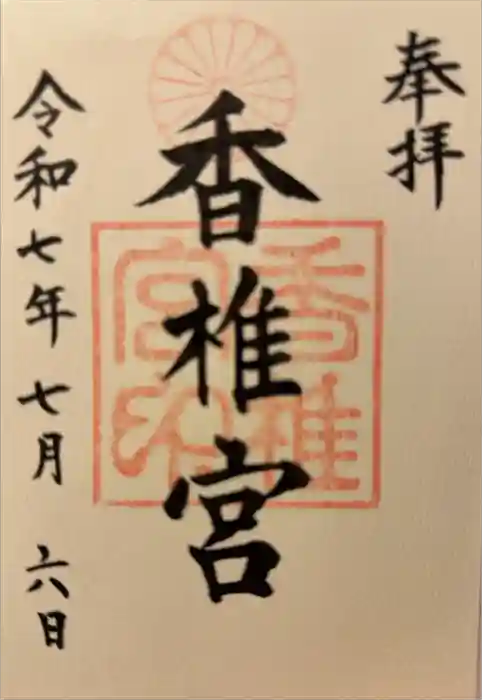 奉拝
香椎宮
香椎宮印
令和七年七月六日